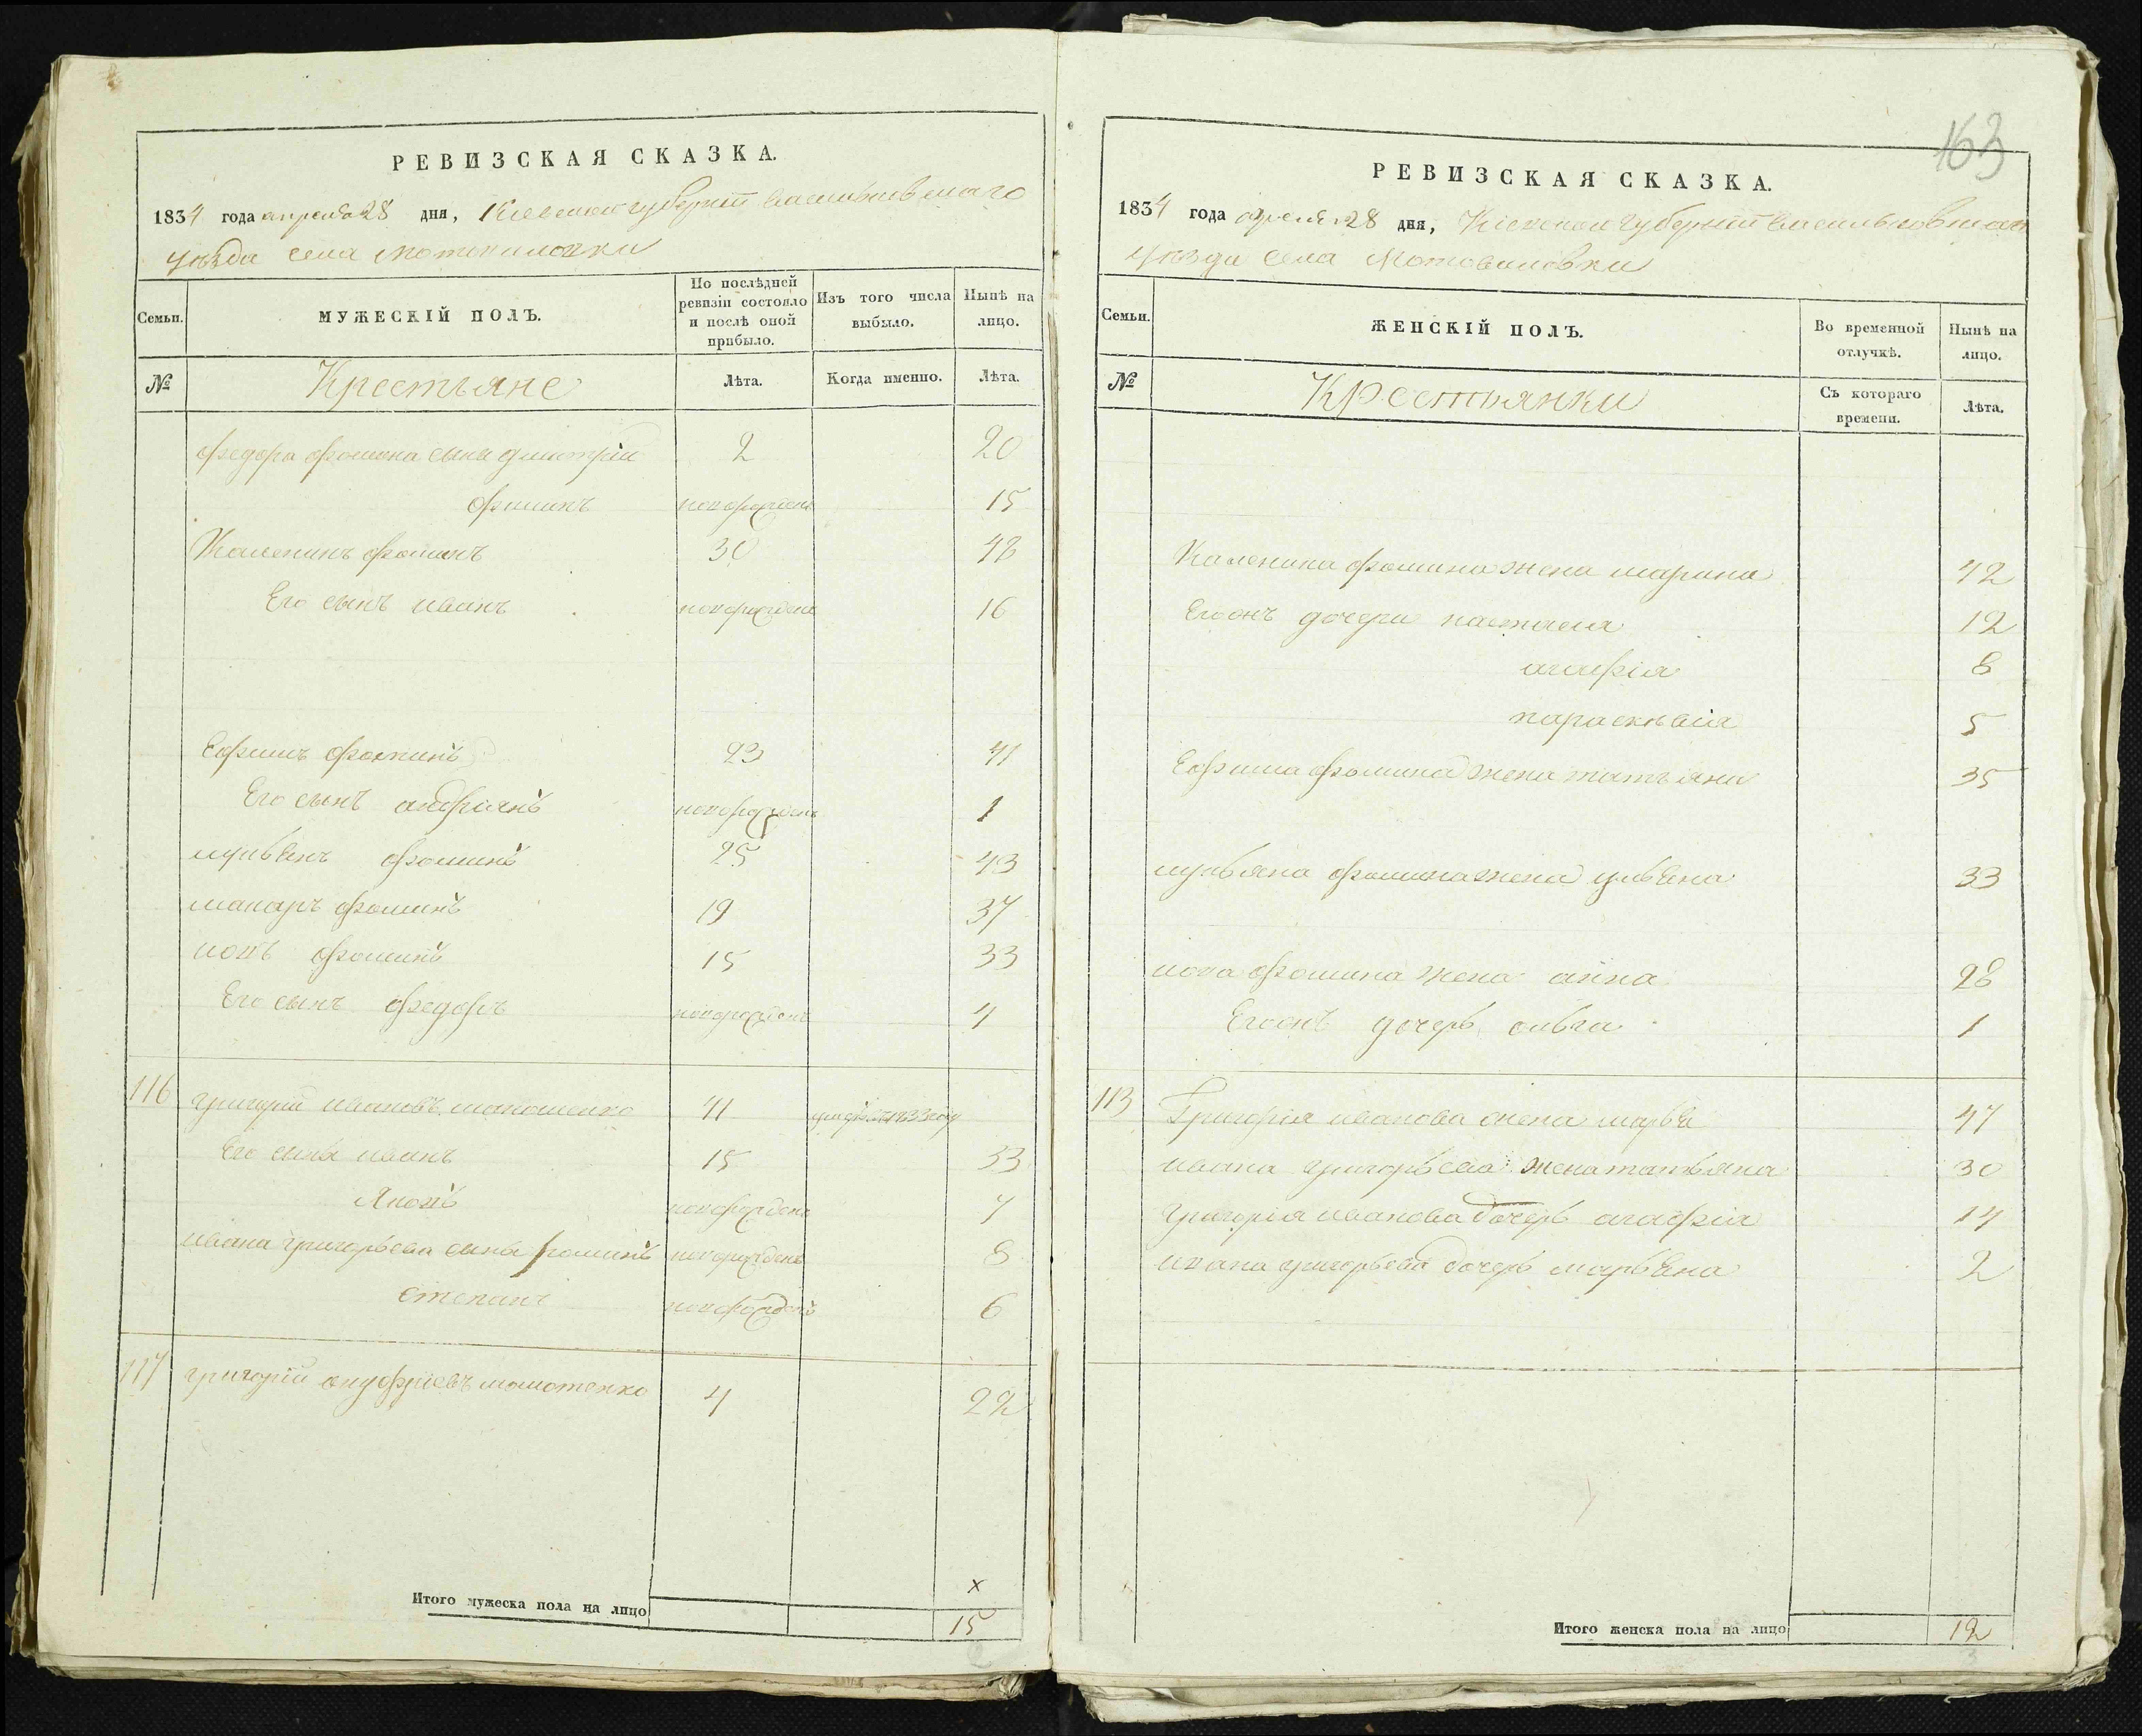 РЕВИЗСКАЯ СКАЗКА.
1834 года апреля 28 дня, Киевской губернии Васильковскаго
уѣзда села Мотовиловки
Семьи.
МУЖЕСКІЙ ПОЛЪ.
По послѣдней ревизіи состояло и послѣ оной прибыло.
Изъ того числа выбыло.
Нынѣ на лицо.
№
Крестьяне
Лѣта.
Когда именно.
Лѣта.
Федора Фомина сынъ дмитрій 2 20
Фоминъ новорожденъ 15
Каленикъ Фоминъ 30 48
Его сынъ иванъ новорожденъ 16
Ефимъ Фоминъ 23 41
Его сынъ новорожденъ 1
Фоминъ 25 43
макаръ Фоминъ 19 37
иовъ Фоминъ 15 33
Его сынъ Федоръ новорожденъ 4
116 григорій ивановъ 41
Его сынъ иванъ 15 33
Яковъ новорожденъ 7
ивана григорьева сынъ новорожденъ 8
степанъ новорожденъ 6
117 григорій онуфріевъ 4 22
х
Итого мужеска пола на лицо 15
163
РЕВИЗСКАЯ СКАЗКА.
1834 года апреля 28 дня, Кіевской губерніи Васильковскаго
уѣзда села Мотовиловки
Семьи.
ЖЕНСКІЙ ПОЛЪ.
Во временной отлучкѣ.
Нынѣ на лицо.
№
Крестьянки
Съ котораго времени.
Лѣта.
Каленика Фомина жена марина 42
дочери настасия 12
агафія 8
параскѣвія 5
Ефима Фомина жена татьяна 35
Фомина жена ульяна 33
иова Фомина жена анна 28
дочерь олвга 1
113 Григорія иванова жена 47
ивана григорьева жена татьяна 30
григорія иванова дочерь агафія 14
ивана григорьева дочерь марьяна 2
Итого женска пола на лицо 12